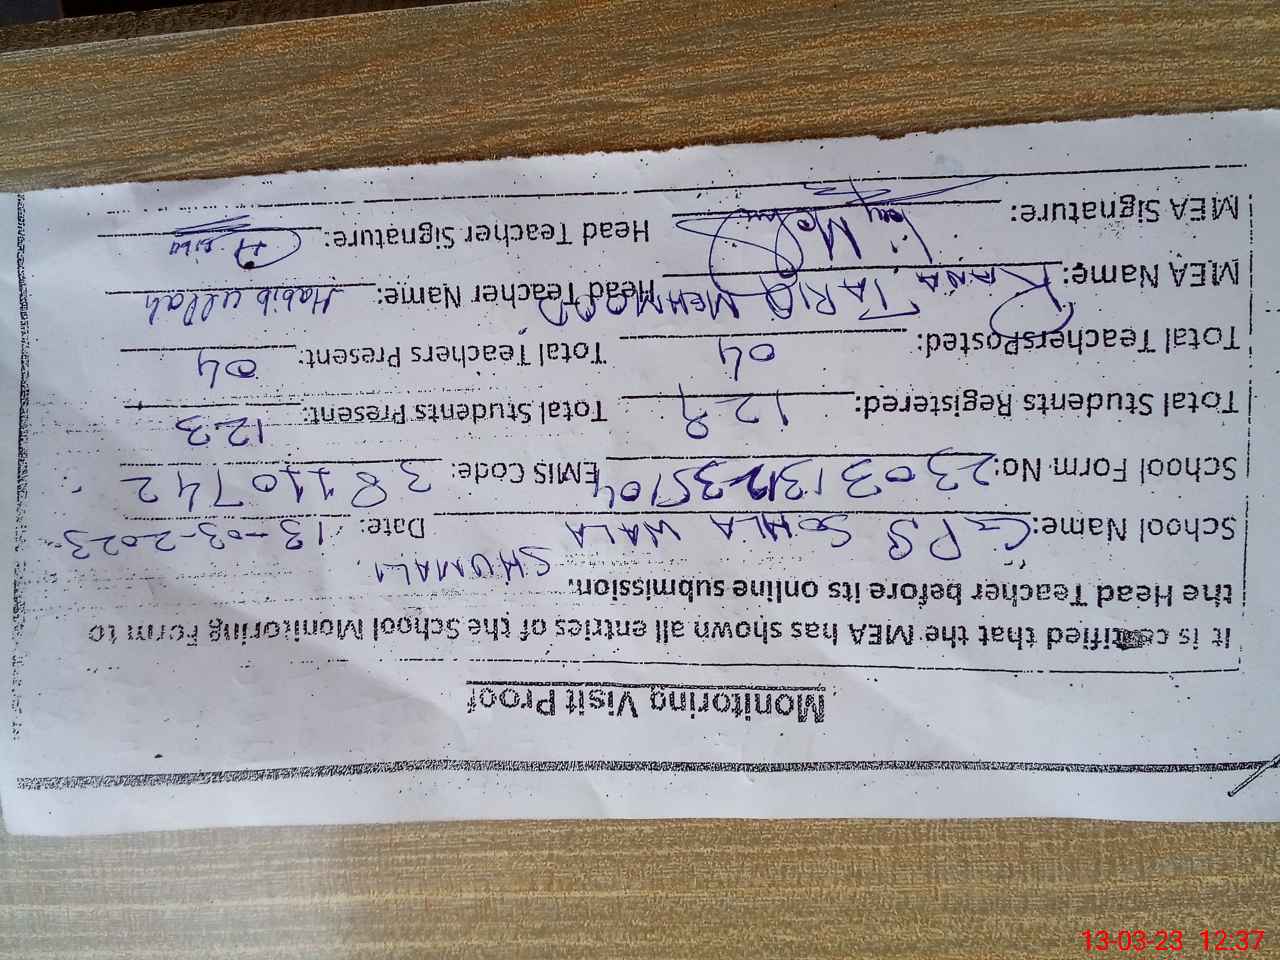 Monitoring Visit Proof
It is certified that the MEA has shown all entries of the School Monitoring Form to
the Head Teacher before its online submission.
SHUMALI
School Name: GPS SOHLA WALA Date: 13-03-2023
School Form No: 2303131235104 EMIS Code: 38110742
Total Students Registered: 129 Total Students Present: 123
Total TeachersPosted: 04 Total Teachers Present: 04
MEA Name: RANA TARIQ MEHMOOD Head Teacher Name: Habib ullah
MEA Signature: Head Teacher Signature:
13-03-23 12:37